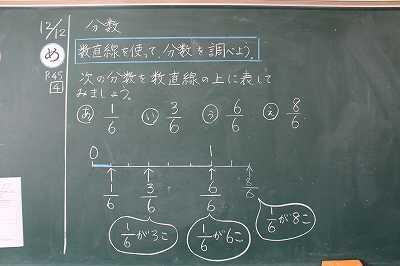 12/12
分数
め
数直線を使って、分数を調べよう。
P.45
4
次の分数を数直線の上に表して
みましょう。
あ 1/6 い 3/6 う 6/6 え 8/6
0 1
1/6 3/6 6/6 8/6
1/6が3こ 1/6が6こ 1/6が8こ